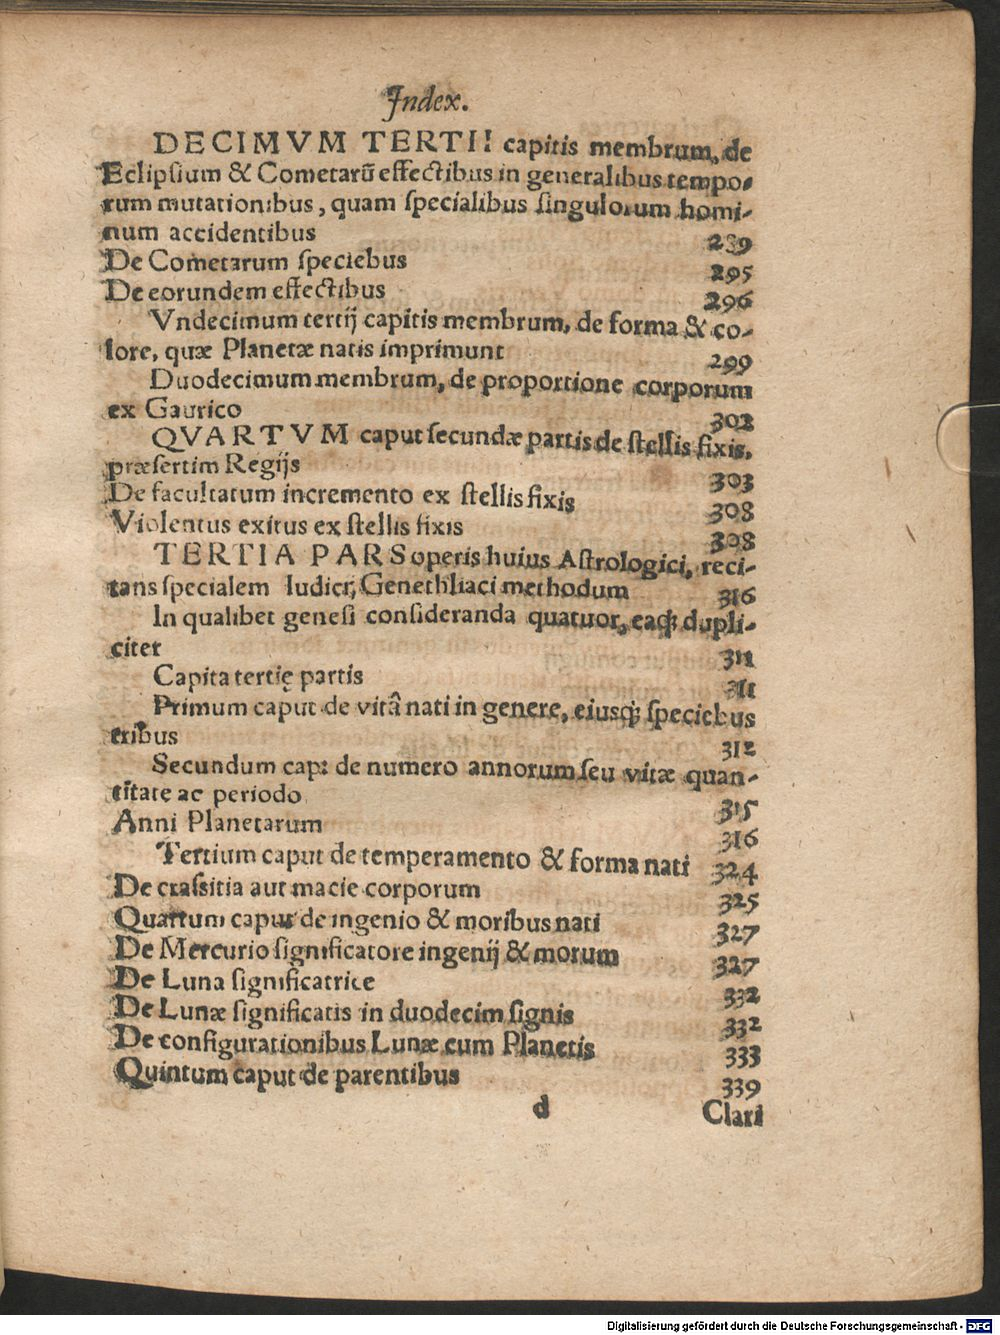 Index.
DECIMVM TERTII capitis membrum, de
Eclipsium & Cometarū effectibus in generalibus tempo-
rum mutationibus, quam specialibus singulorum homi-
num accidentibus 289
De Cometarum speciebus 295
De eorundem effectibus 296
Vndecimum tertij capitis membrum, de forma & co-
lore, quæ Planetæ natis imprimunt 299
Duodecimum membrum, de proportione corporum
ex Gaurico 302
QVARTVM caput secundæ partis de stellis fixis,
præsertim Regijs 303
De facultatum incremento ex stellis fixis 308
Violentus exitus ex stellis fixis 308
TERTIA PARS operis huius Astrologici, reci-
tans specialem Iudicij Genethliaci methodum 316
In qualibet genesi consideranda quatuor, eaq; dupli-
citer 311
Capita tertię partis 311
Primum caput de vitâ nati in genere, eiusq; speciebus
tribus 312
Secundum cap: de numero annorum seu vitæ quan-
titate ac periodo 315
Anni Planetarum 316
Tertium caput de temperamento & forma nati 324
De crassitia aut macie corporum 325
Quartum caput de ingenio & moribus nati 327
De Mercurio significatore ingenij & morum 327
De Luna significatrice 332
De Lunæ significatis in duodecim signis 332
De configurationibus Lunæ cum Planetis 333
Quintum caput de parentibus 339
d Clari
Digitalisierung gefördert durch die Deutsche Forschungsgemeinschaft - DFG